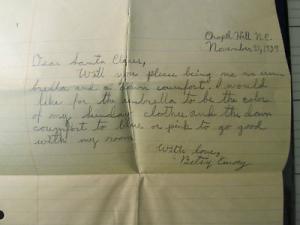 Chapel Hill N.C.
November 21, 1939
Dear Santa Claus,
Will you please bring me an um-
brella and a down comfort. I would
like for the umbrella to be the color
of my Sunday clothes and the down
comfort to blue or pink to go good
with my room.
With love,
Betty